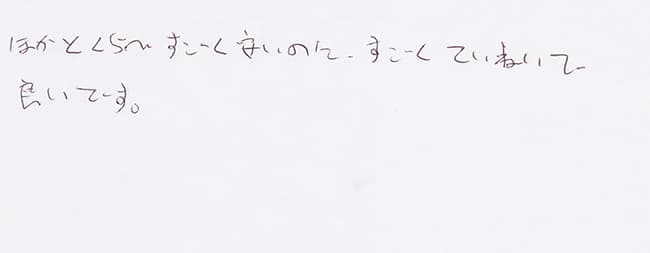 ほかとくらべ すごーく安いのに、すごーくていねいで
良いです。